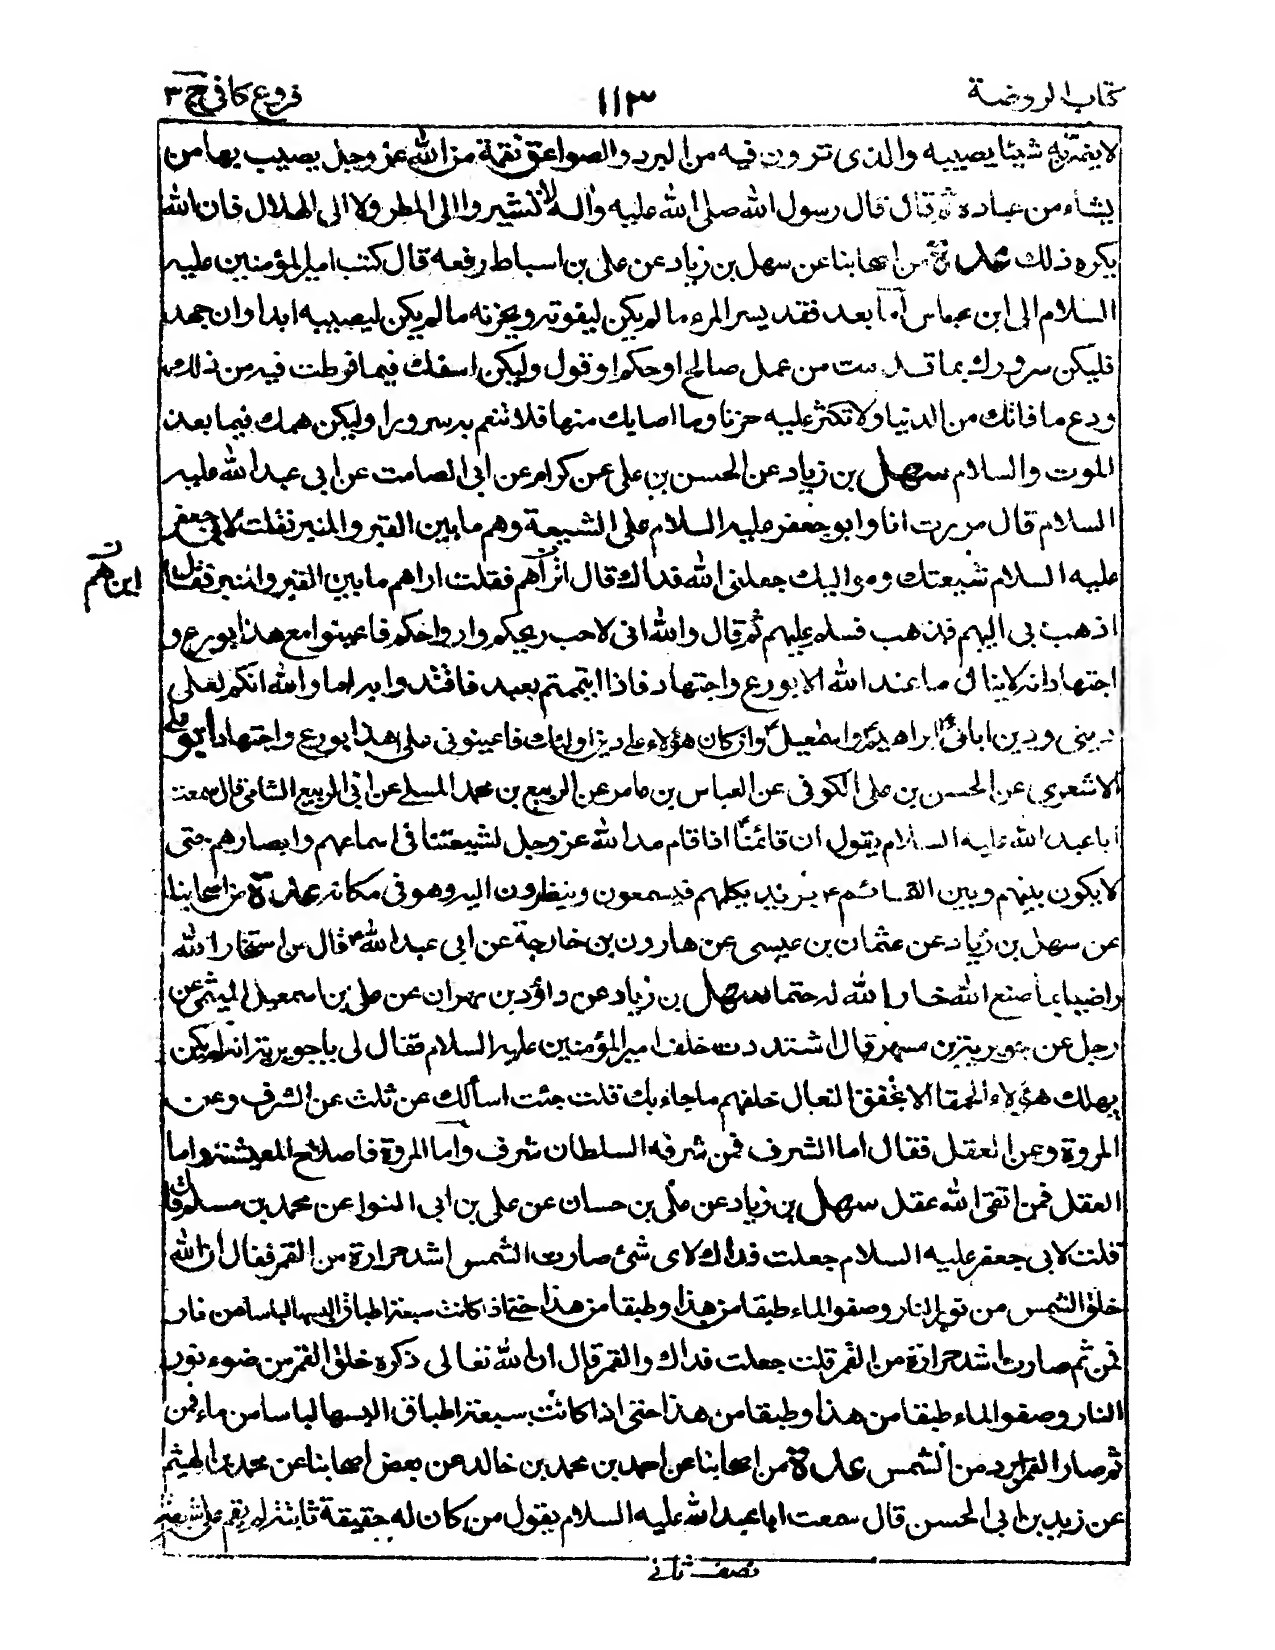 كتاب الروضة
١١٣
فروع كافى ج ٣
لا يضر به شيئا يصيبه والذى ترون فيه من البرد والصواعق نقمة من الله عز وجل يصيب بها من
يشاء من عباده ثم قال قال رسول الله صلى الله عليه وآله لا تشيروا الى المطر ولا الى الهلال فان الله
يكره ذلك عدة من اصحابنا عن سهل بن زياد عن على بن اسباط رفعه قال كتب امير المؤمنين عليه
السلام الى ابن عباس أما بعد فقد يسر المرء ما لم يكن ليفوته ويحزنه ما لم يكن ليصيبه ابدا وان جهد
فليكن سرورك بما قدمت من عمل صالح او حكم او قول وليكن اسفك فيما فرطت فيه من ذلك
ودع ما فاتك من الدنيا ولا تكثر عليه حزنا وما اصابك منها فلا تنعم به سرورا وليكن همك فيما بعد
الموت والسلام سهل بن زياد عن الحسن بن على عن كرام عن ابى الصامت عن ابى عبد الله عليه
السلام قال مررت انا وابو جعفر عليه السلام على الشيعة وهم ما بين القبر والمنبر فقلت لابى جعفر
عليه السلام شيعتك ومواليك جعلنى الله فداك قال اين تراهم فقلت اراهم ما بين القبر والمنبر فقال
اين هم
اذهب بى اليهم فذهب فسلم عليهم ثم قال والله انى لاحب ريحكم وارواحكم فاعينوا مع هذا بورع و
اجتهاد انه لا ينال ما عند الله الا بورع واجتهاد فاذا ائتممتم بعبد فاقتدوا به اما والله انكم لعلى
دينى ودين ابائى ابراهيم واسمعيل وان كان هؤلاء على دين اولئك فاعينونى على هذا بورع واجتهاد ابو على
الاشعرى عن الحسن بن على الكوفى عن العباس بن عامر عن الربيع بن محمد المسلى عن ابى الربيع الشامى قال سمعت
ابا عبد الله عليه السلام يقول ان قائمنا اذا قام مد الله عز وجل لشيعتنا فى اسماعهم وابصارهم حتى
لا يكون بينهم وبين القائم ع بريد يكلمهم فيسمعون وينظرون اليه وهو فى مكانه عدة من اصحابنا
عن سهل بن زياد عن عثمان بن عيسى عن هارون بن خارجة عن ابى عبد الله ع قال من استخار الله
راضيا بما صنع الله خار الله له حتما سهل بن زياد عن داؤد بن مهران عن على بن اسمعيل الميثمى عن
رجل عن جويرية بن مسهر قال اشتددت خلف امير المؤمنين عليه السلام فقال لى يا جويرية انه لم يكن
يهلك هؤلاء الحمقا الا بخفق النعال خلفهم ما جاء بك قلت جئت اسألك عن ثلث عن الشرف وعن
المروة وعن العقل فقال اما الشرف فمن شرفه السلطان شرف واما المروة فاصلاح المعيشة واما
العقل فمن اتقى الله عقل سهل بن زياد عن على بن حسان عن على بن ابى النوا عن محمد بن مسلم قال
قلت لابى جعفر عليه السلام جعلت فداك لاى شئ صارت الشمس اشد حرارة من القمر فقال ان الله
خلق الشمس من نور النار وصفو الماء طبقا من هذا وطبقا من هذا حتى اذا كانت سبعة اطباق البسها لباسا من نار
فمن ثم صارت اشد حرارة من القمر قلت جعلت فداك والقمر قال ان الله تعالى ذكره خلق القمر من ضوء نور
النار وصفو الماء طبقا من هذا وطبقا من هذا حتى اذا كانت سبعة اطباق البسها لباسا من ماء فمن
ثم صار القمر ابرد من الشمس عدة من اصحابنا عن احمد بن محمد بن خالد عن بعض اصحابنا عن محمد بن الهيثم
عن زيد بن ابى الحسن قال سمعت ابا عبد الله عليه السلام يقول من كان له حقيقة ثابتة لم يقم على شبهة
نصف ثانى